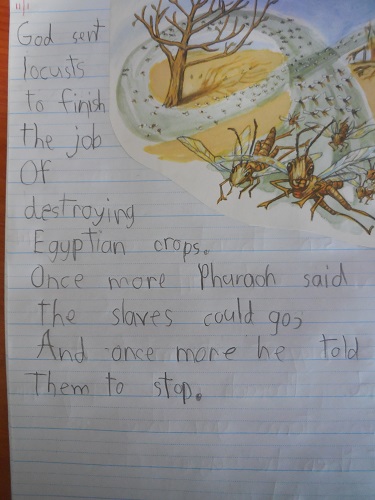 God sent
locusts
to finish
the job
Of
destroying
Egyptian crops.
Once more Pharaoh said
the slaves could go;
And once more he told
Them to stop.